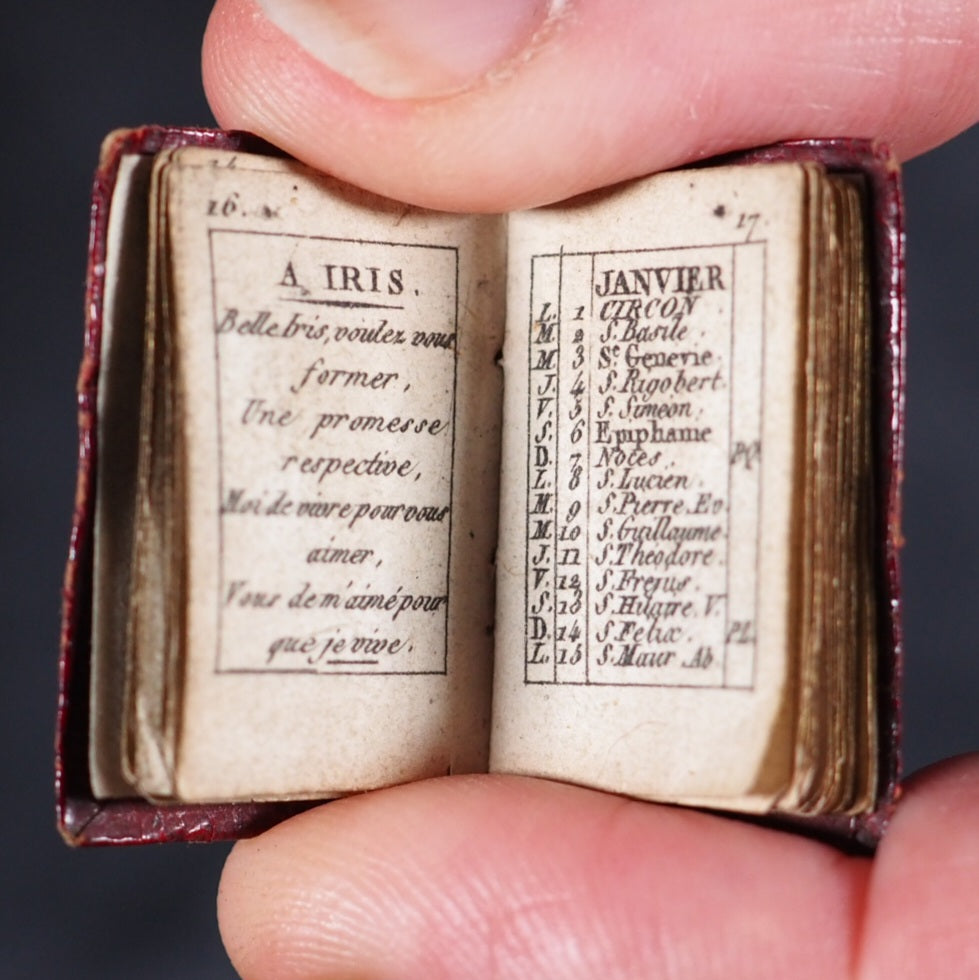 16.
A IRIS.
Belle Iris, voulez vous
former,
Une promesse
respective,
Moi de vivre pour vous
aimer,
Vous de m'aimé pour
que je vive.
17
JANVIER
L. 1 CIRCON
M. 2 S. Basile.
M. 3 Sᵉ. Genevie.
J. 4 S. Rigobert.
V. 5 S. Simeon.
S. 6 Epiphanie
D. 7 Noces. PQ
L. 8 S. Lucien.
M. 9 S. Pierre. Ev.
M. 10 S. Guillaume.
J. 11 S. Theodore.
V. 12 S. Frejus.
S. 13 S. Hilaire. V.
D. 14 S. Felix. PL.
L. 15 S. Maur. Ab